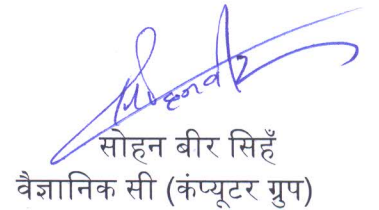 सोहनवीर
सोहन बीर सिहँ
वैज्ञानिक सी (कंप्यूटर ग्रुप)